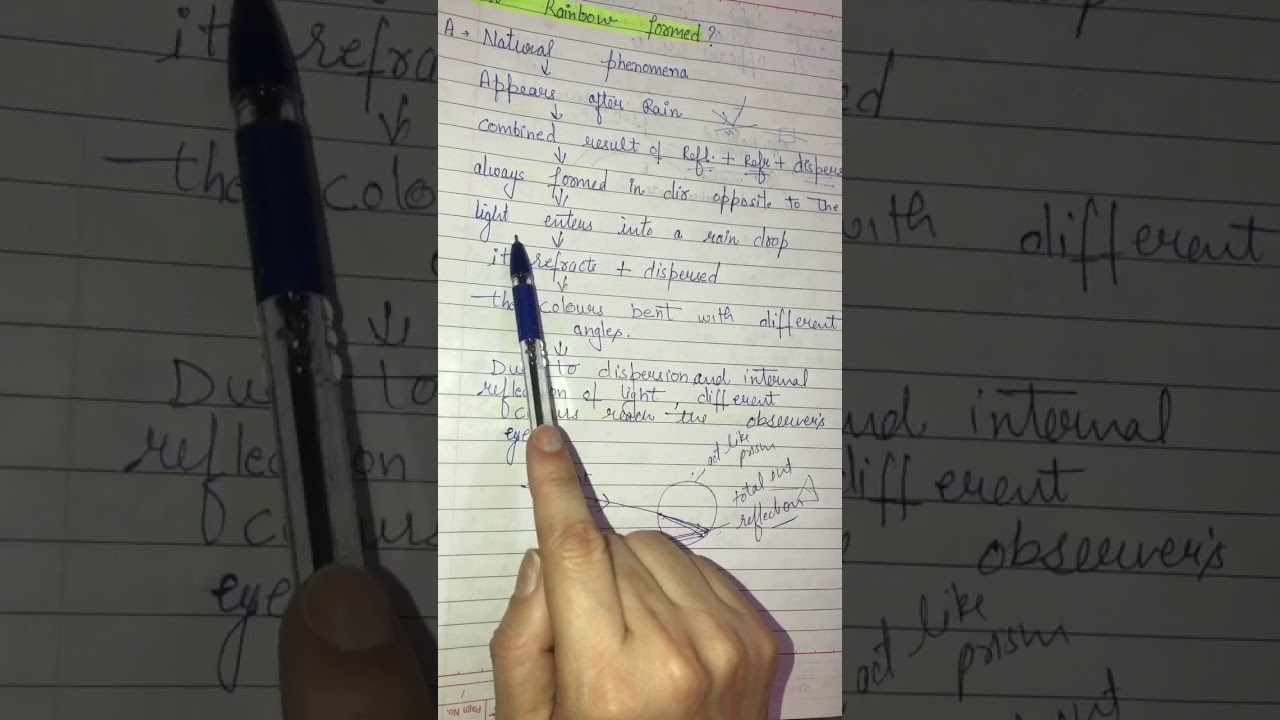 Rainbow formed?
A → Natural phenomena
Appears after Rain
combined result of Refl. + Refr + dispers
always formed in dir. opposite to the
light enters into a rain drop
it refracts + dispersed
the colours bent with different
angles.
Due to dispersion and internal
reflection of light, different
colours reach the observer's
eye
act like
prism
total int
reflection
Page No.